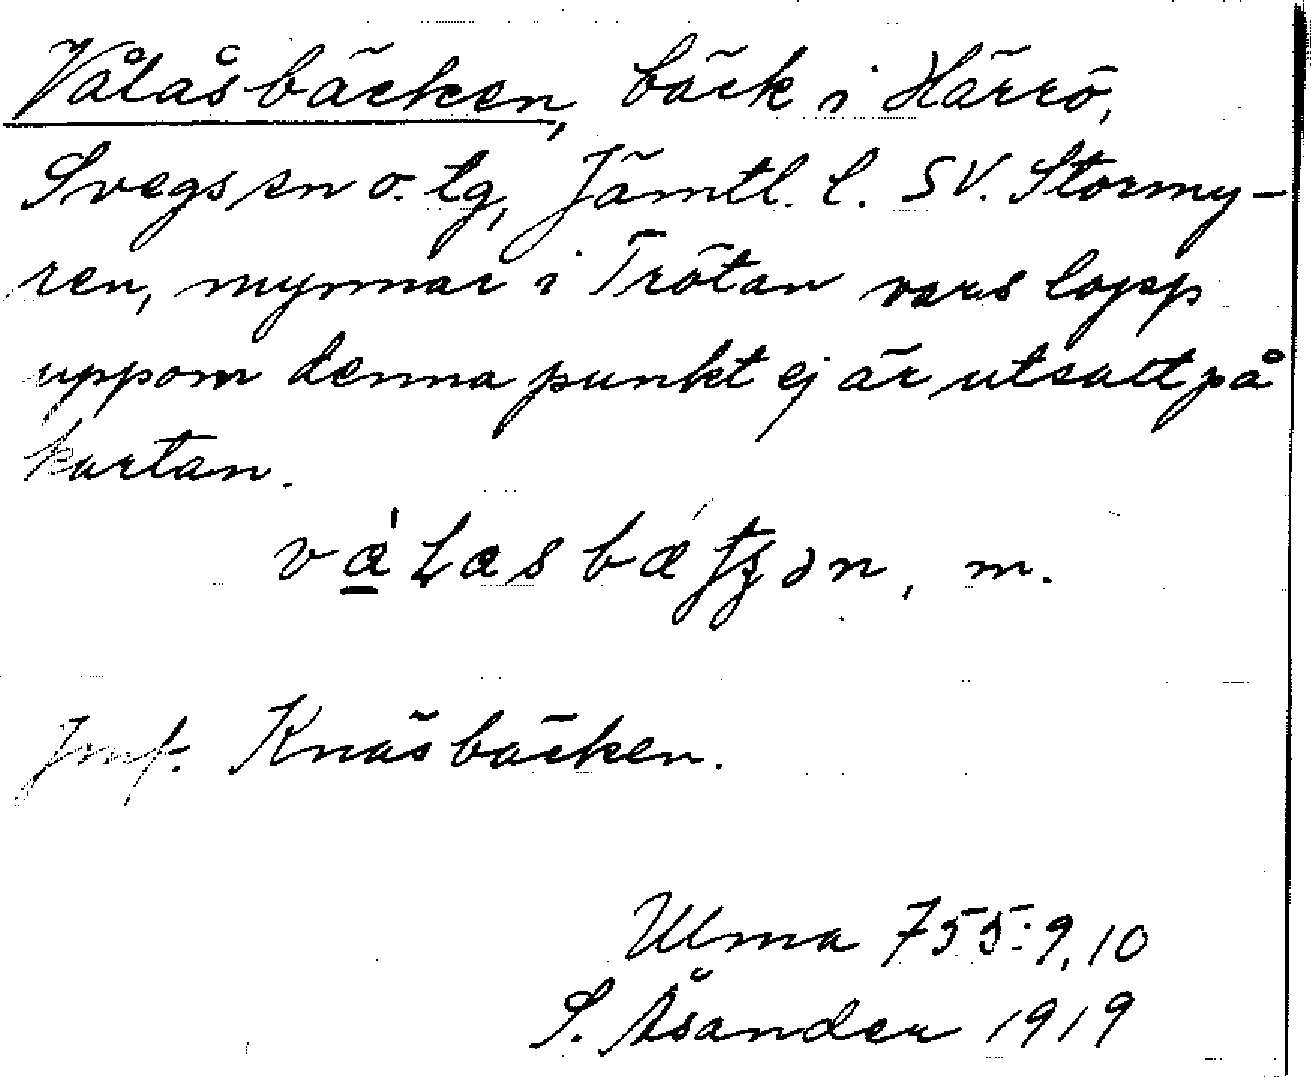 Vålåsbäcken, bäck i Härrö,
Svegs sn o. tg, Jämtl. l. SV. Stormy-
ren, mynnar i Trötan vars lopp
uppom denna punkt ej är utsatt på
kartan.
m.
Jmf. Knäsbäcken.
Ulma 755:9,10
S. Åsander 1919